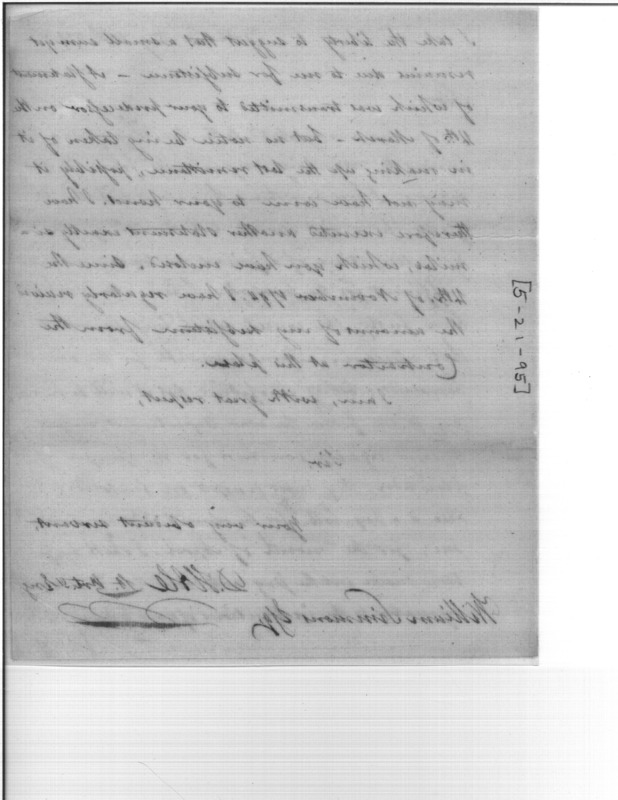 I take the liberty to suggest that a small sum yet
remains due to me for Subsistence – A Statement
of which was transmitted to your predecessor on the
4th of March – but no notice being taken of it
in making up the last remittance, possibly it
may not have come to your hand. I have
therefore executed another Statement exactly si-
milar, which you have inclosed. Since the
4th of November 1794 I have regularly received
the amount of my subsistence from the
Contractor at this place.
I am, with great respect,
Sir
Your very obedient servant,
William Simmons Esq.
[5-21-95]